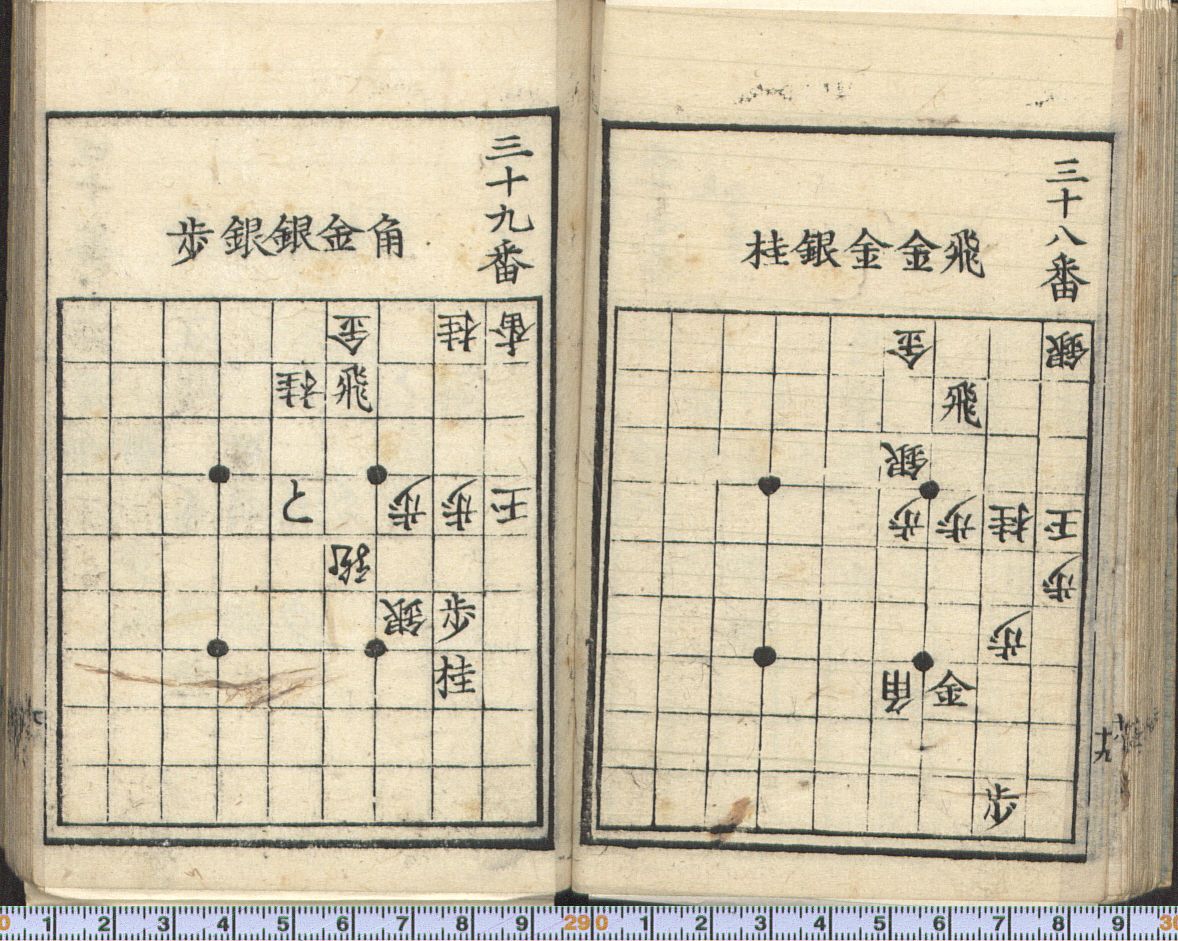 三十八番
飛金金銀桂
銀 金
飛
銀
玉 桂 歩 歩
歩
歩
金 角
歩
十九
三十九番
角金銀銀歩
香 桂 金
飛 桂
玉 歩 歩 と
歩 銀
桂
0 1 2 3 4 5 6 7 8 9 290 1 2 3 4 5 6 7 8 9 30